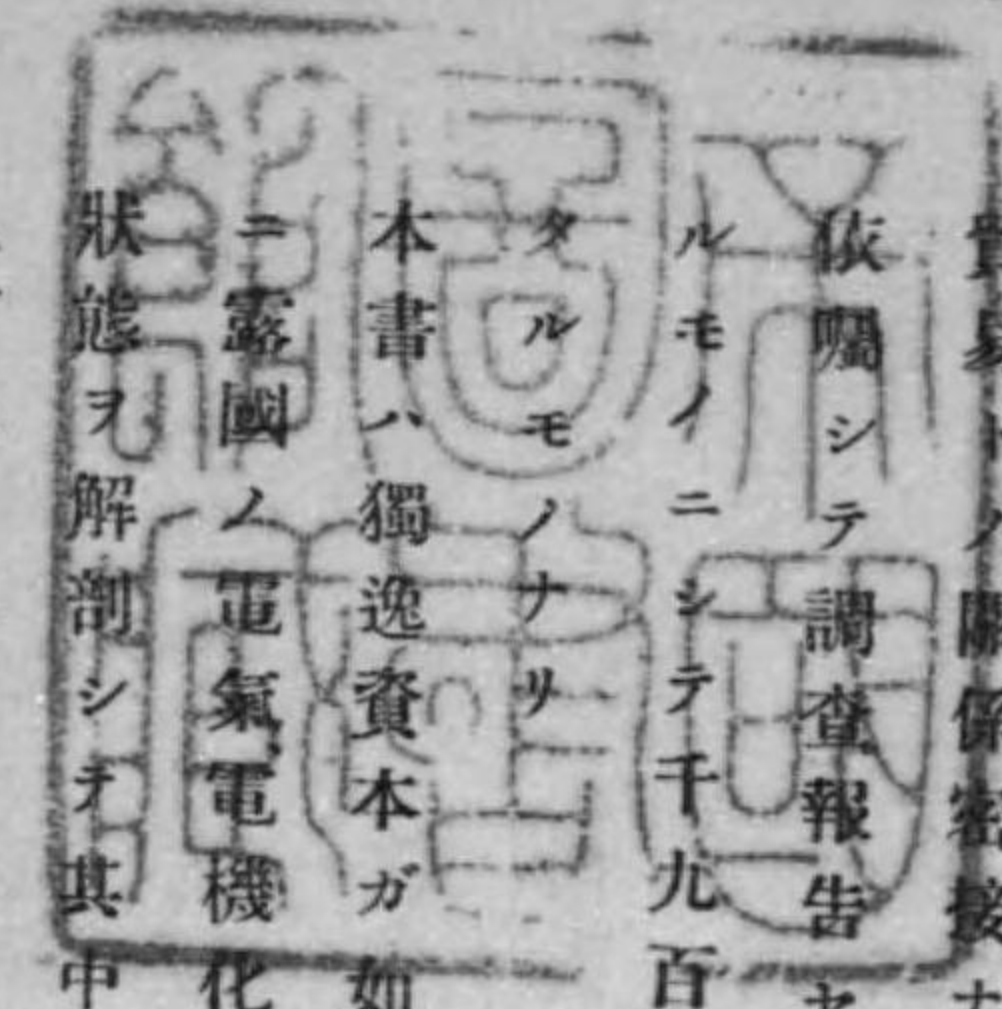 貿易ノ關係密接
依囑シテ調査報告セ
ルモノニシテ千九百
タルモノナリ
本書ハ獨逸資本ガ如
ニ露國ノ電氣電機化
狀態ヲ解剖シテ其中